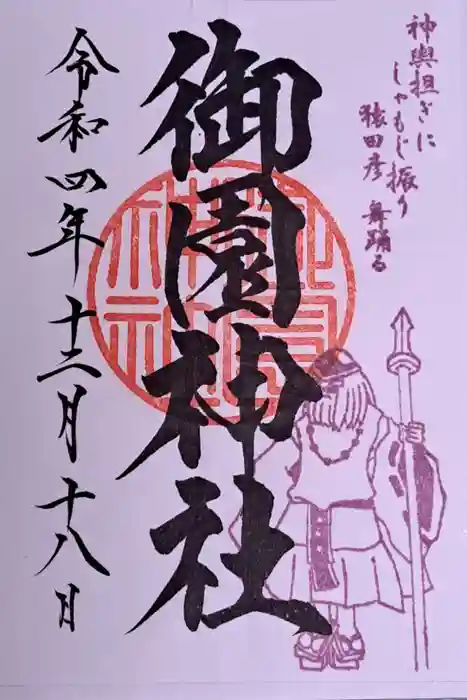 神輿担ぎに
しゃもじ振り
猿田彦 舞踊る
御園神社
令和四年十二月十八日